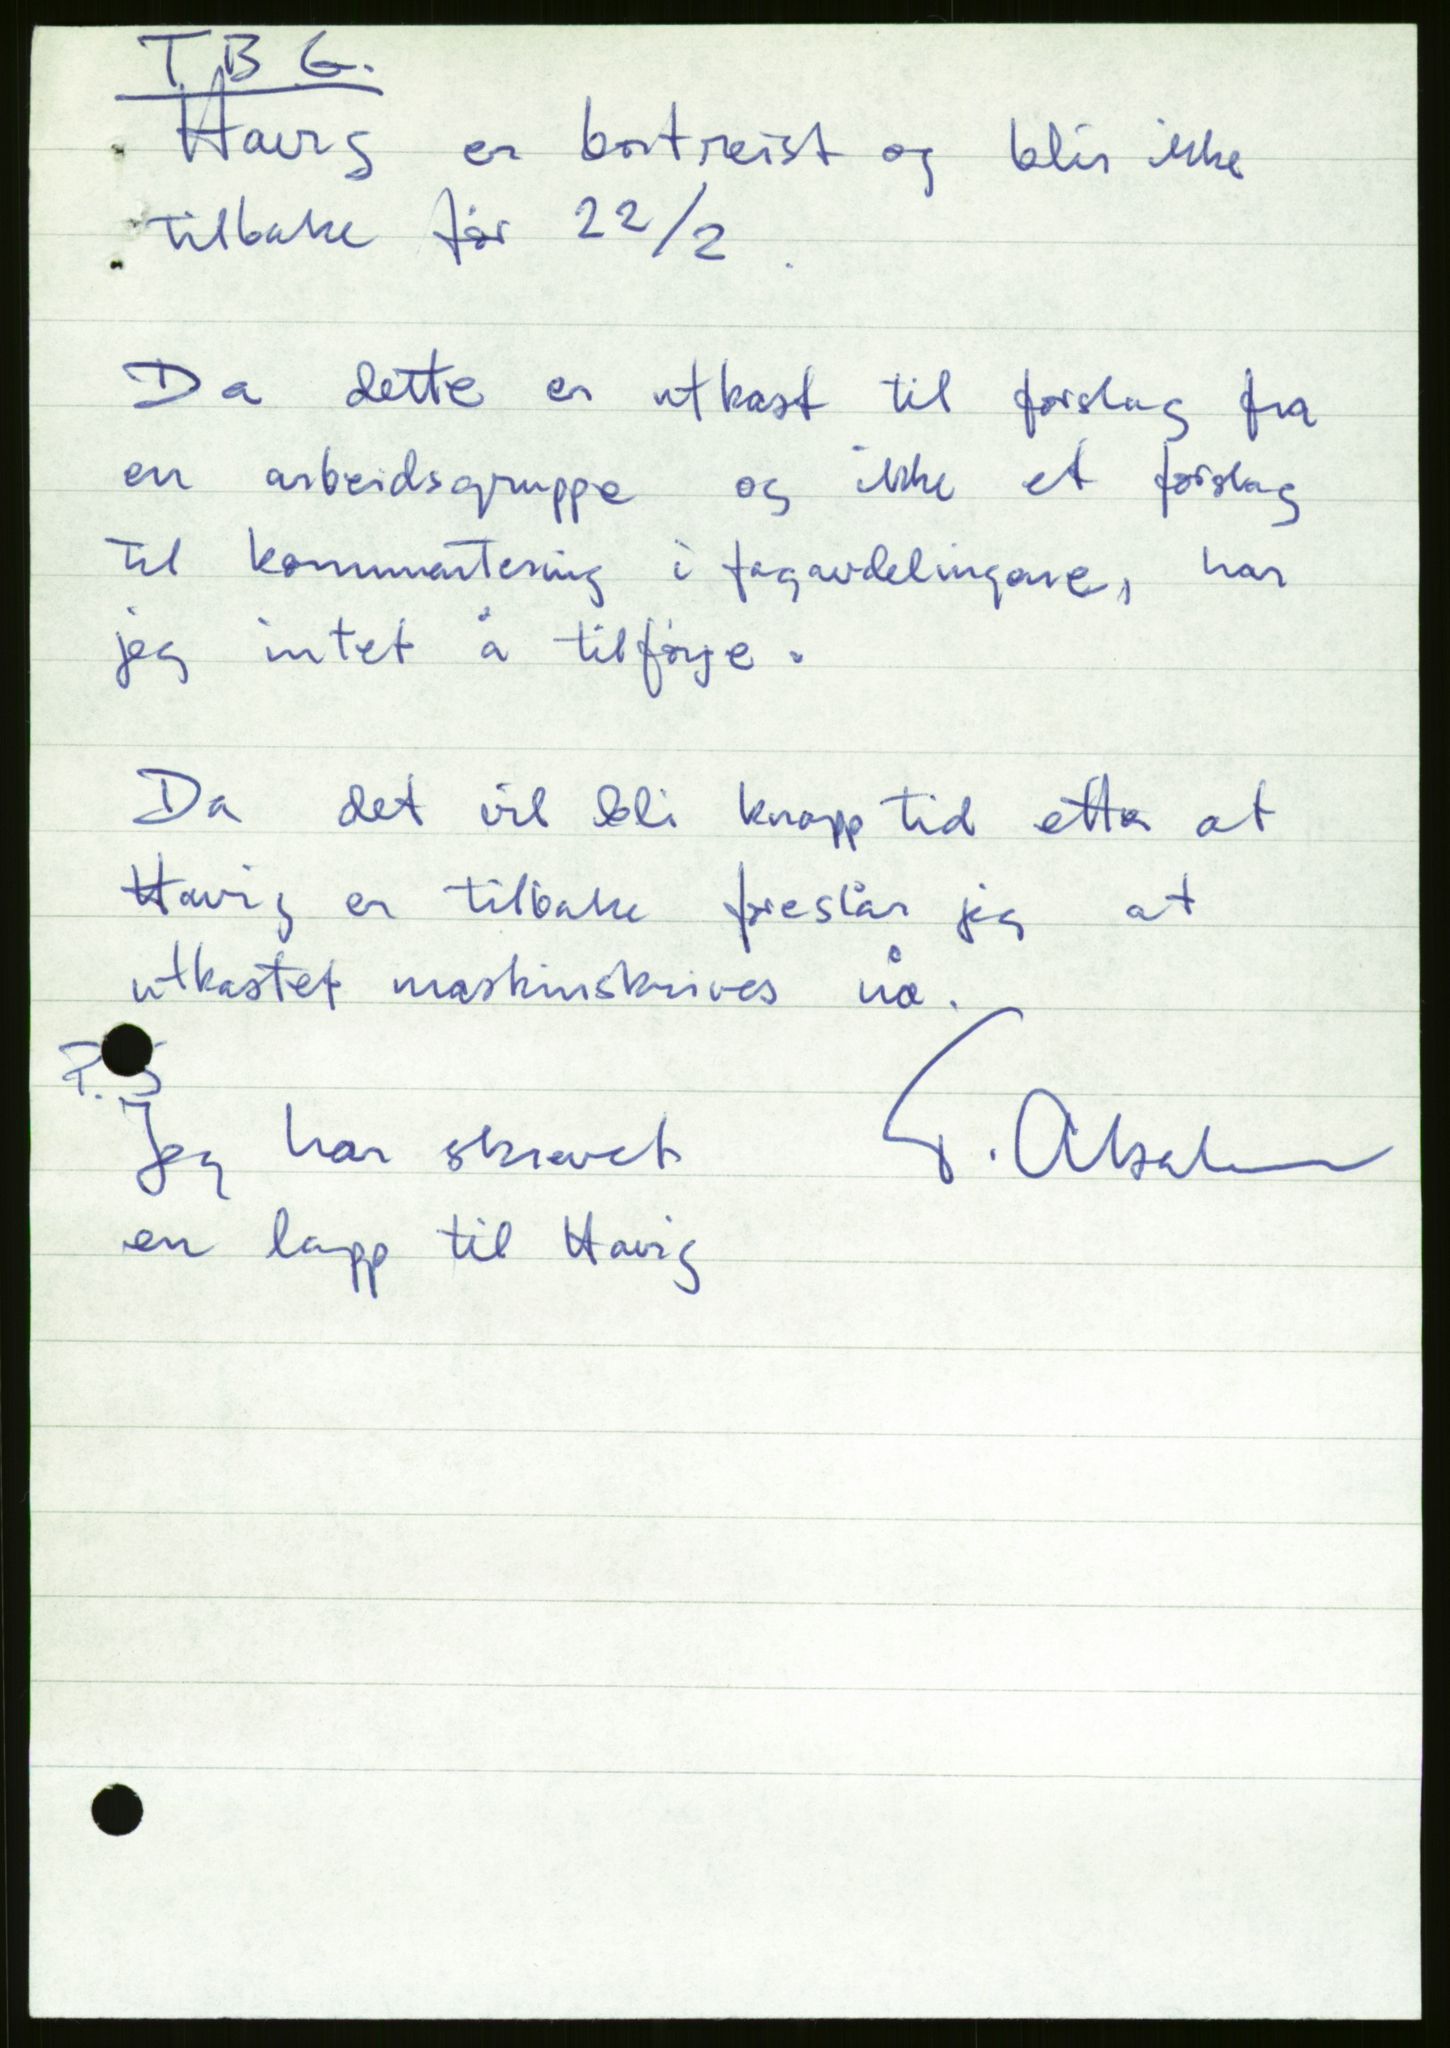 T B G.
Havig er bortreist og blir ikke
tilbake før 22/2.
Da dette er utkast til forslag fra
en arbeidsgruppe og ikke et forslag
til kommentering i fagavdelingene, har
jeg intet å tilføye.
Da det vil bli knapp tid etter at
Havig er tilbake foreslår jeg at
utkastet maskinskrives nå.
P.S
Jeg har skrevet
en lapp til Havig